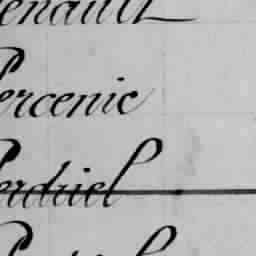 enault
Percenic
Perdriel